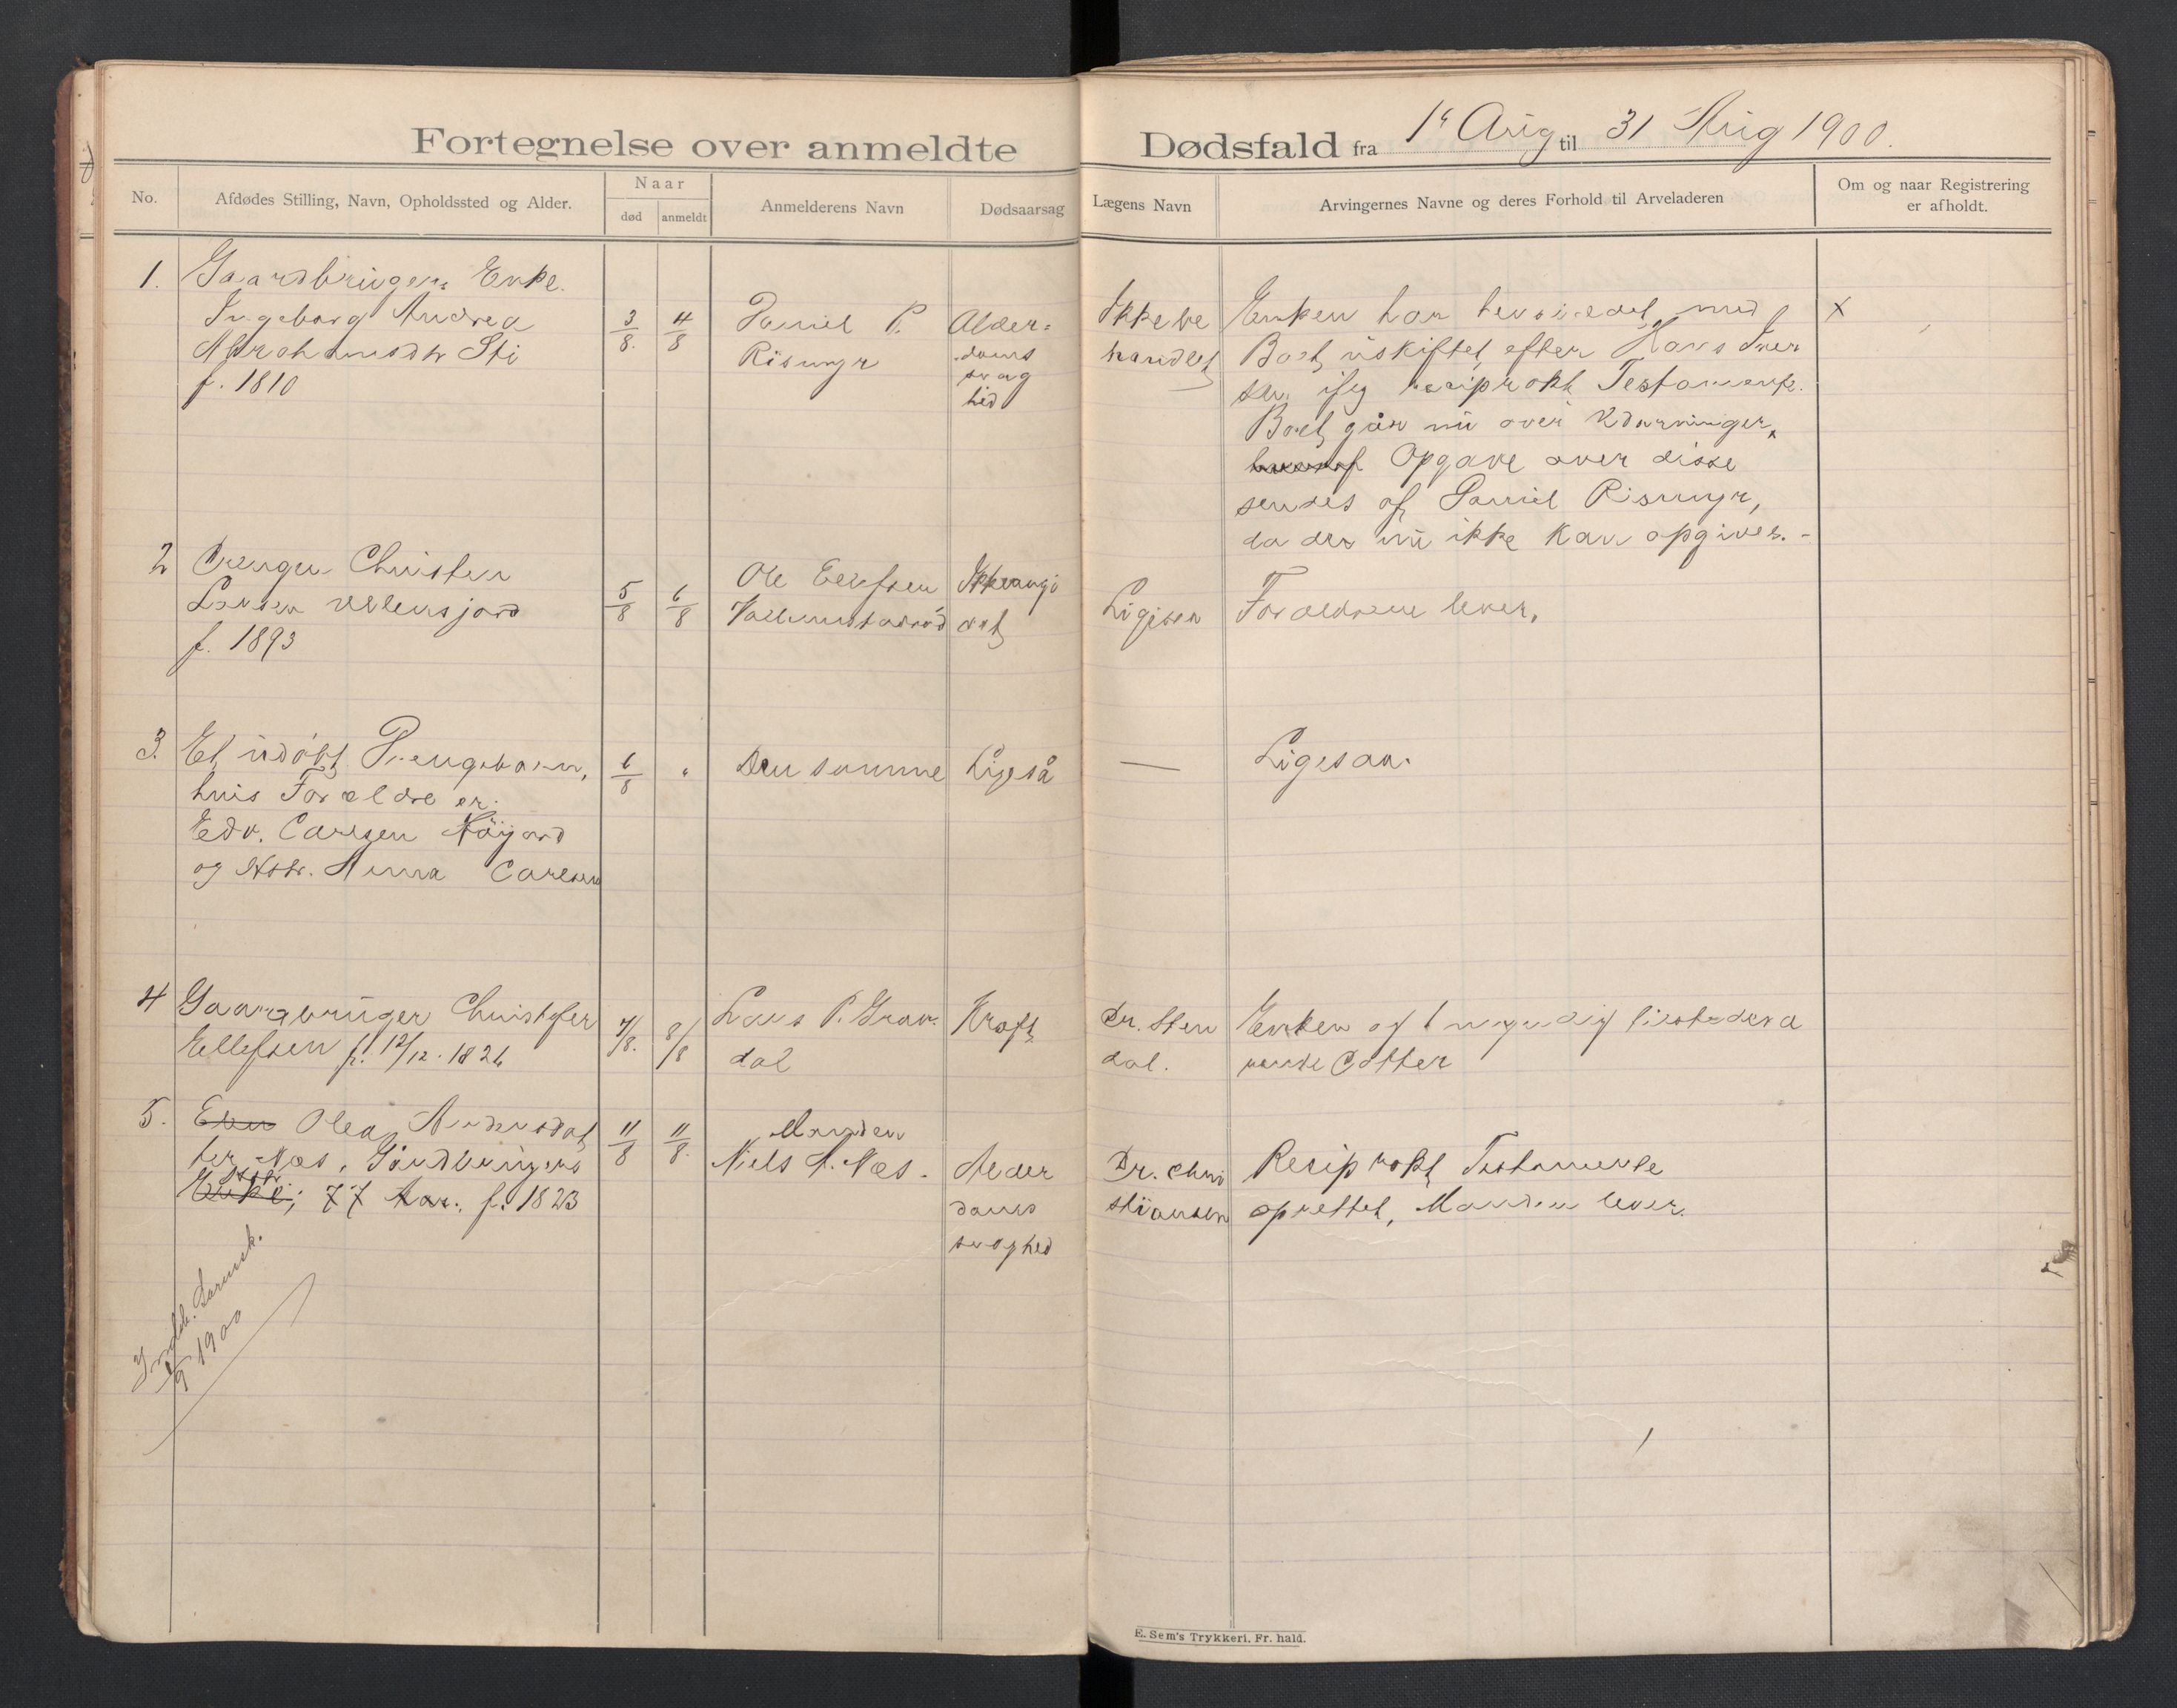 Fortegnelse over anmeldte Dødsfald fra 1ᵉ Aug til 31 Aug 1900.
No.
Afdødes Stilling, Navn, Opholdssted og Alder.
Naar
død
anmeldt
Anmelderens Navn
Dødsaarsag
Lægens Navn
Arvingernes Navne og deres Forhold til Arveladeren
Om og naar Registrering
er afholdt.
1.
Gaardbrugers Enke.
Ingeborg Andrea
Abrahamsdtr Sti
f. 1810
3/8.
4/8
Daniel P.
Rismyr
Alder=
doms
svag
hed
Ikke be
handlet
Enken har hensiddet med
Boet uskiftet efter Hans Iver
sen ifølg resiprokt Testamente.
Boet går nu over Udarvinger,
Opgave over disse
sendes af Daniel Rismyr,
da der nu ikke kan opgives. -
x
2
Drengen Christen
Larsen Ullensjord
f. 1893
5/8
6/8
Ole Ellefsen
Ikke angi
vet
Ligesaa
Forældrene lever.
3.
Et udøbt Drengebarn,
hvis Forældre er.
Edv. Carlsen Høyjord
og Hstr. Anna Carlsen
6/8
"
Den samme
Ligeså
—
Ligesaa.
4
Gaardbruger Christofer
Ellefsen f. 12/12. 1826
7/8.
8/8
Lars P. Grav.
dal
Kræft
Dr. Sten
dal.
Enken og 1 myndig tilstedevæ
rende Datter
5.
Olea Andersdat
ter Næs, Gårdbrugers
Enke; 77 Aar. f. 1823
11/8
11/8.
Manden
Niels A. Næs.
Alder
doms
svaghed
Dr. Chri
stiansen
Resiprokt Testamente
oprettet, Manden lever.
Indb. Larvik.
1/9 1900
E. Sem's Trykkeri, Fr.hald.